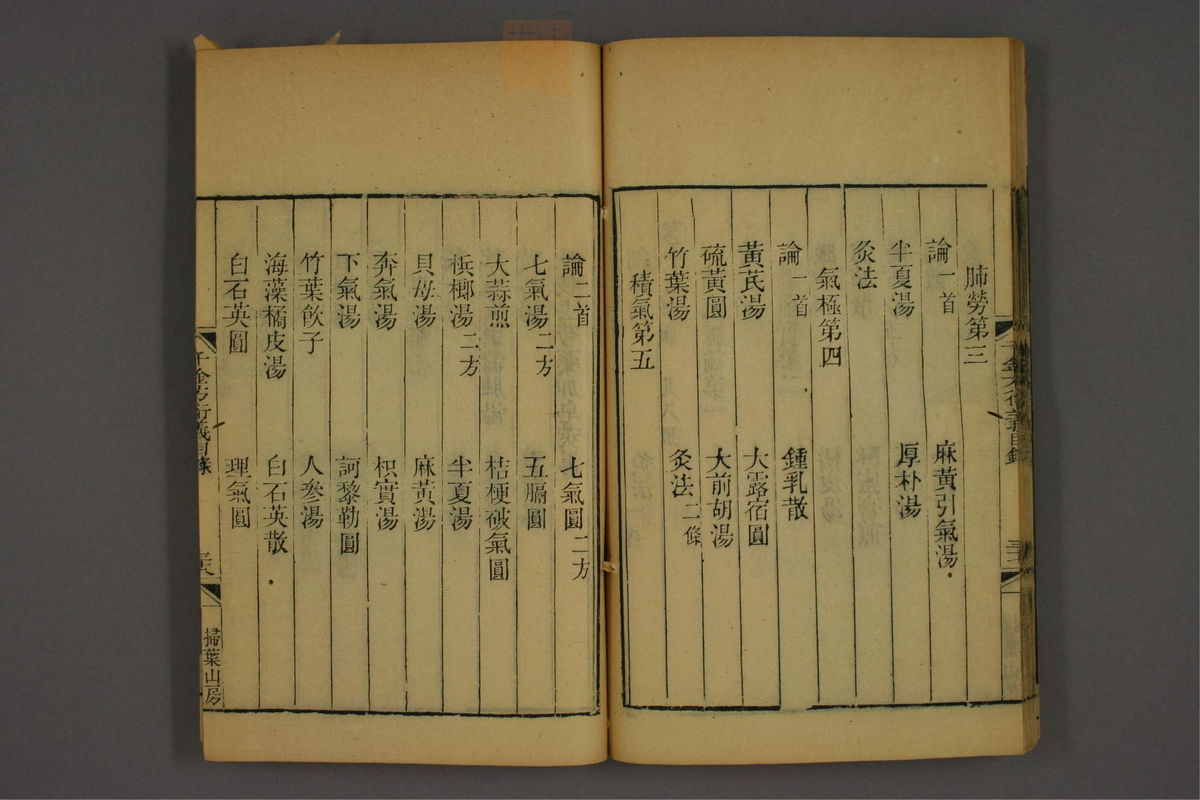 肺勞第三
論一首 麻黃引氣湯
半夏湯 厚朴湯
灸法
氣極第四
論一首 鍾乳散
黃芪湯 大露宿圓
硫黃圓 大前胡湯
竹葉湯 灸法二條
積氣第五
論二首 七氣圓二方
七氣湯二方 五膈圓
大蒜煎 桔梗破氣圓
檳榔湯二方 半夏湯
貝母湯 麻黃湯
奔氣湯 枳實湯
下氣湯 訶黎勒圓
竹葉飲子 人參湯
海藻橘皮湯 白石英散
白石英圓 理氣圓
千金方衍義目錄
掃葉山房